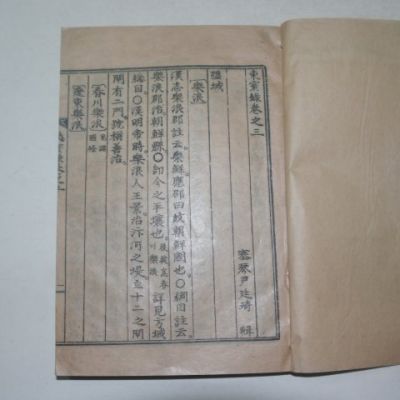 東寰錄卷之三
尹廷琦 輯
疆域
樂浪
漢志樂浪郡註云樂鮮應邵曰故朝鮮國也○綱目註云
樂浪郡治朝鮮縣○卽今之平壤也後漢 樂浪詳見方域
綱目○漢明帝時樂浪人王景治汴河之堤立十二之閘
閘有二門號稱善治
春川樂浪
遼東樂浪